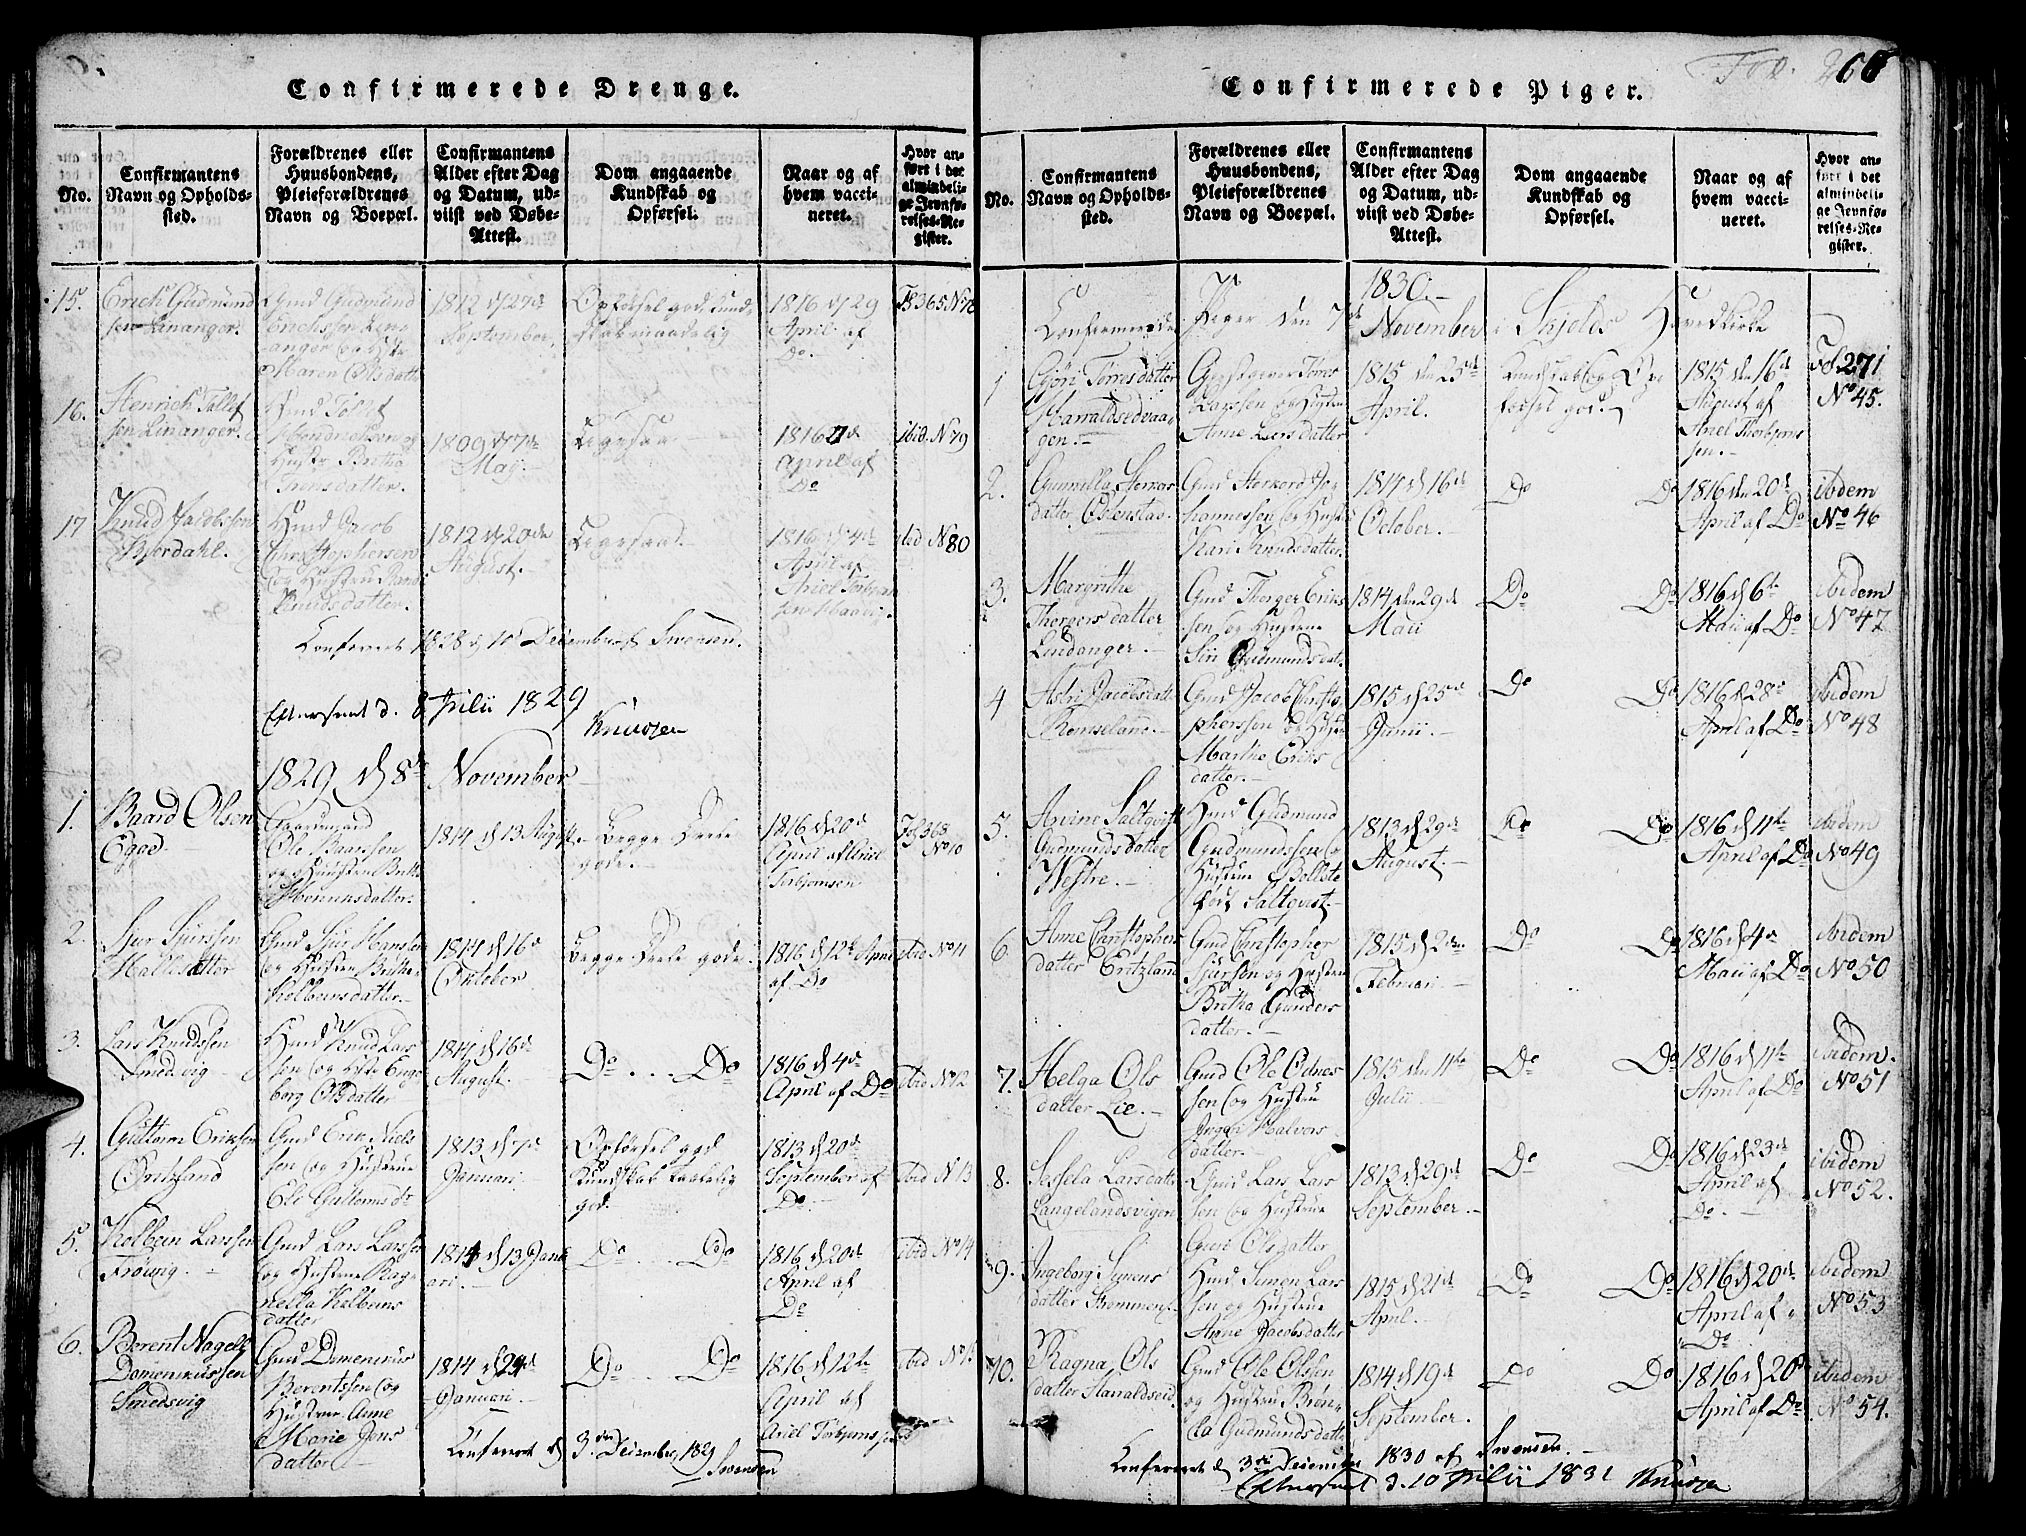 Confirmerede Drenge.
No.
Confirmantens
Navn og Opholds-
sted.
Forældrenes eller
Huusbondens,
Pleieforældrenes
Navn og Boepæl.
Confirmantens
Alder efter Dag
og Datum, ud-
viist ved Døbe-
Attest.
Dom angaaende
Kundskab og
Opførsel.
Naar og af
hvem vacci-
neret.
Hvor an-
ført i det
almindeli-
ge Jevnfø-
relses-Re-
gister.
15.
Erich Gudmund
sen Linanger.
Gmd Gudmund
Erichssen Lin-
anger og Hustr
Maren Olsdatter
1812 d 27de
September.
Opførsel god, Kund-
skab maadelig
1816 d 29
April af
Do.
Fol 365 No 78
16.
Henrich Tollef
sen Linanger.
Hmd Tollef
Hendrichsen og
Hustr Britha
1809 d 7de
May.
Ligesaa
April af
Do
ibid. No 79
17
Knud Jacobssen
Hmd Jacob
Christophersen
og Hustrue
Knudsdatter.
1812 d 20de
August.
Ligesaa.
1816 d 4de
April af
Ariel Torbiørn
ibid No 80
Confereret 1828 d 10 December af Svensen.
Efterseet d. 8 Julii 1829
Knudsen
1829 d 8de November
1.
Baard Olsen
Egge
Gaardmand
Ole Baarssen
og Hustrue Britte
1814 d 13 August
Begge Deele
gode.
1816 d 20de
April af Ariel
Torbjornsen
Fol 368
No 10
2.
Sjur Sjurssen
Gmd Sjur Hanssen
og Hustrue Britha
Kolbensdatter.
1814 d 16de
Oktober
Begge Deele gode.
1816 d 12te April
af Do
ibid No 11
3.
Lars Knudssen
Smedvig
Hmd Knud Lars
sen og Hstr Enge
borg Olsdatter
1814 d 16de
August.
Do . . . Do
1816 d 4de
April af Do
ibid No 12
4.
Guttorm Erikssen
Gmd Erik Niels
sen og Hustrue
Eli Guttormsdr
1813 d 7de
Januari.
Opførsel god
Kundskab
god.
1813 d 20de
September af
Do.
ibid No 13
5.
Kolbein Larssen
Frøvig.
Gmd Lars Larssen
og Hustrue Rag-
nella Kolbeins
datter
1814 d 13 Janu
ari.
Do . . . Do
1816 d 20de
April af
Do
ibid No 14
6.
Berent Nagel
Domenicussen
Smedsvig
Gmd Domenicus
Berentssen og
Hustrue Anne
Marie Jens
datter
1814 d 24de
Januari.
Do Do
1816 d 12te
April af
Ariel Torbjornssen
ibid No 15
Confereret d 3die December 1829
Svensen
Fol. 266
Confirmerede Piger.
No.
Confirmantens
Navn og Opholds-
sted.
Forældrenes eller
Huusbondens,
Pleieforældrenes
Navn og Boepæl.
Confirmantens
Alder efter Dag
og Datum, ud-
viist ved Døbe-
Attest.
Dom angaaende
Kundskab og
Opførsel.
Naar og af
hvem vacci-
neret.
Hvor an-
ført i det
almindeli-
ge Jevnfø-
relses-Re-
gister.
1830.
Confirmerede Piger den 7de November i Skjolds Hovedkirke
1
Gjøri Torresdatter
Larssen og Hustrue
Anne Larsdatter
1815 den 25de
April.
Kundskab og Op-
førsel god.
1815 den 16de
August af
Ariel Thorbjorns
sen.
Fol 271
No 45.
2.
Gunnilla Storkors
datter Østenstad.
Gmd Storkord Jo-
hannessen og Hustrue
Kari Knudsdatter.
1814 d 16de
October.
Do Do
1816 den 20de
April af Do
ibidem
No 46
3.
Margrethe
Thorgersdatter
Lindanger.
Gmd Thorger Eriks
sen og Hustrue
Siri Gudmundsdat.
1814 den 29de
Maii
Do Do
1816 d 6te
Maii af Do
ibidem
No 47
4
Astri Jacobsdatter
Gmd Jacob Christo-
phersson og Hustrue
Marthe Eriks
datter.
1815 d 25de
Junii.
Do Do
1816 d 28de
April af Do
ibidem
No 48
5.
Gudmundsdatter
Westre.
Hmd Gudmund
Gudmundssen og
Hustrue Bollete
født Saltqvist.
1813 d 29de
August.
Do Do
1816 d 11te
April af Do
ibidem
No 49
6
Anne Christophers
datter Eritzland
Gmd Christopher
Sjursen og Hustrue
Britha Gunders
datter.
1815 d 2den
Februari.
Do Do
1816 d 4de
Maii af Do
ibidem
No 50
7.
Helga Ols
datter Lie.
Gmd Ole Odnes
sen og Hustrue
Ingeri Halvors
datter.
1815 den 11te
Julii
Do Do
1816 d 11te
April af Do
ibidem.
No 51
8.
Sessela Larsdatter
Langelandsvigen
Gmd Lars Lars
sen og Hustrue
Guri Olsdatter
1813 d 29de
September.
Do Do
1816 d 23de
April af
Do.
ibidem
No 52.
9.
Ingeborg Simens
datter Strømmen.
Hmd Simon Lars
sen og Hustrue
Anne Jacobsdatter
1815 d 21de
April.
Do Do
1816 d 20de
April af
Do
ibidem
No 53
10.
Ragna Ols
datter Haraldseid
Gmd Ole Olssen
og Hustrue Brøn-
la Gudmundsdatter
1814 d 19de
September.
Do Do
1816 d 20de
April af Do
ibidem
No 54.
Confereret d 3die December 1830 af Svensen.
Efterseet d. 10 Julii 1831 Knudsen